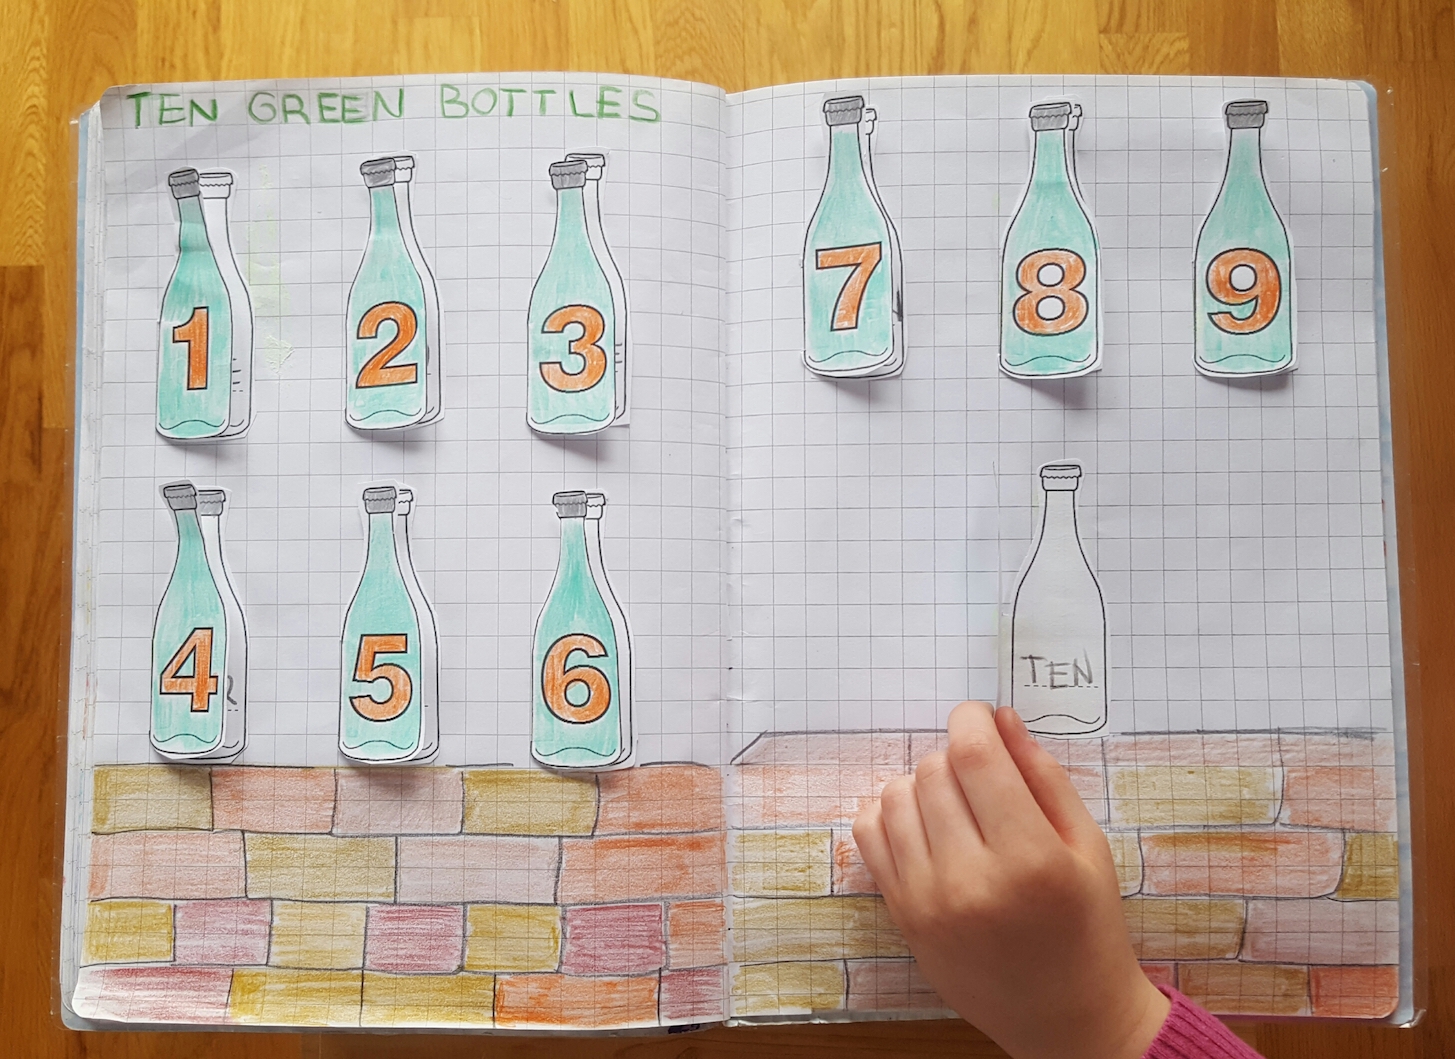 TEN GREEN BOTTLES
1 2 3
4 5 6
7 8 9
TEN